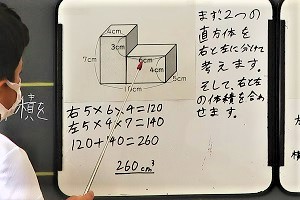 4cm
3cm
6cm
7cm
4cm
5cm
10cm
右5×6×4=120
左5×4×7=140
120+140=260
260cm³
まず2つの
直方体を
右と左に分けて
考えます。
そして、右と左
の体積を合わ
せます。
積を